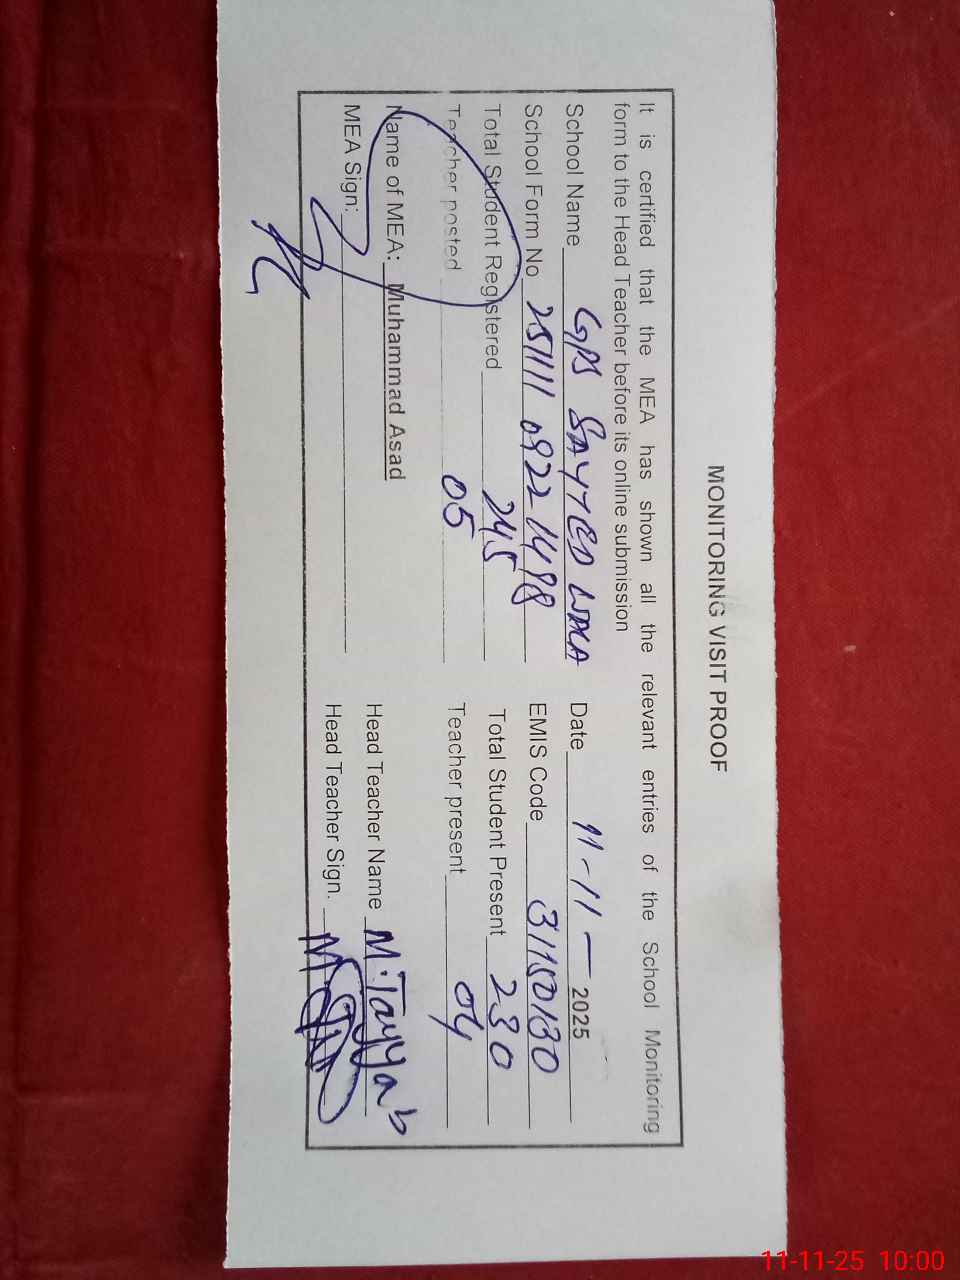 MONITORING VISIT PROOF
It is certified that the MEA has shown all the relevant entries of the School Monitoring
form to the Head Teacher before its online submission
School Name GPS SAYYED WALA Date 11-11-2025
School Form No 251111 0922 1498 EMIS Code 31150130
Total Student Registered 245 Total Student Present 230
Teacher posted 05 Teacher present 04
Name of MEA: Muhammad Asad Head Teacher Name M.Tayyab
MEA Sign: Head Teacher Sign.
11-11-25 10:00